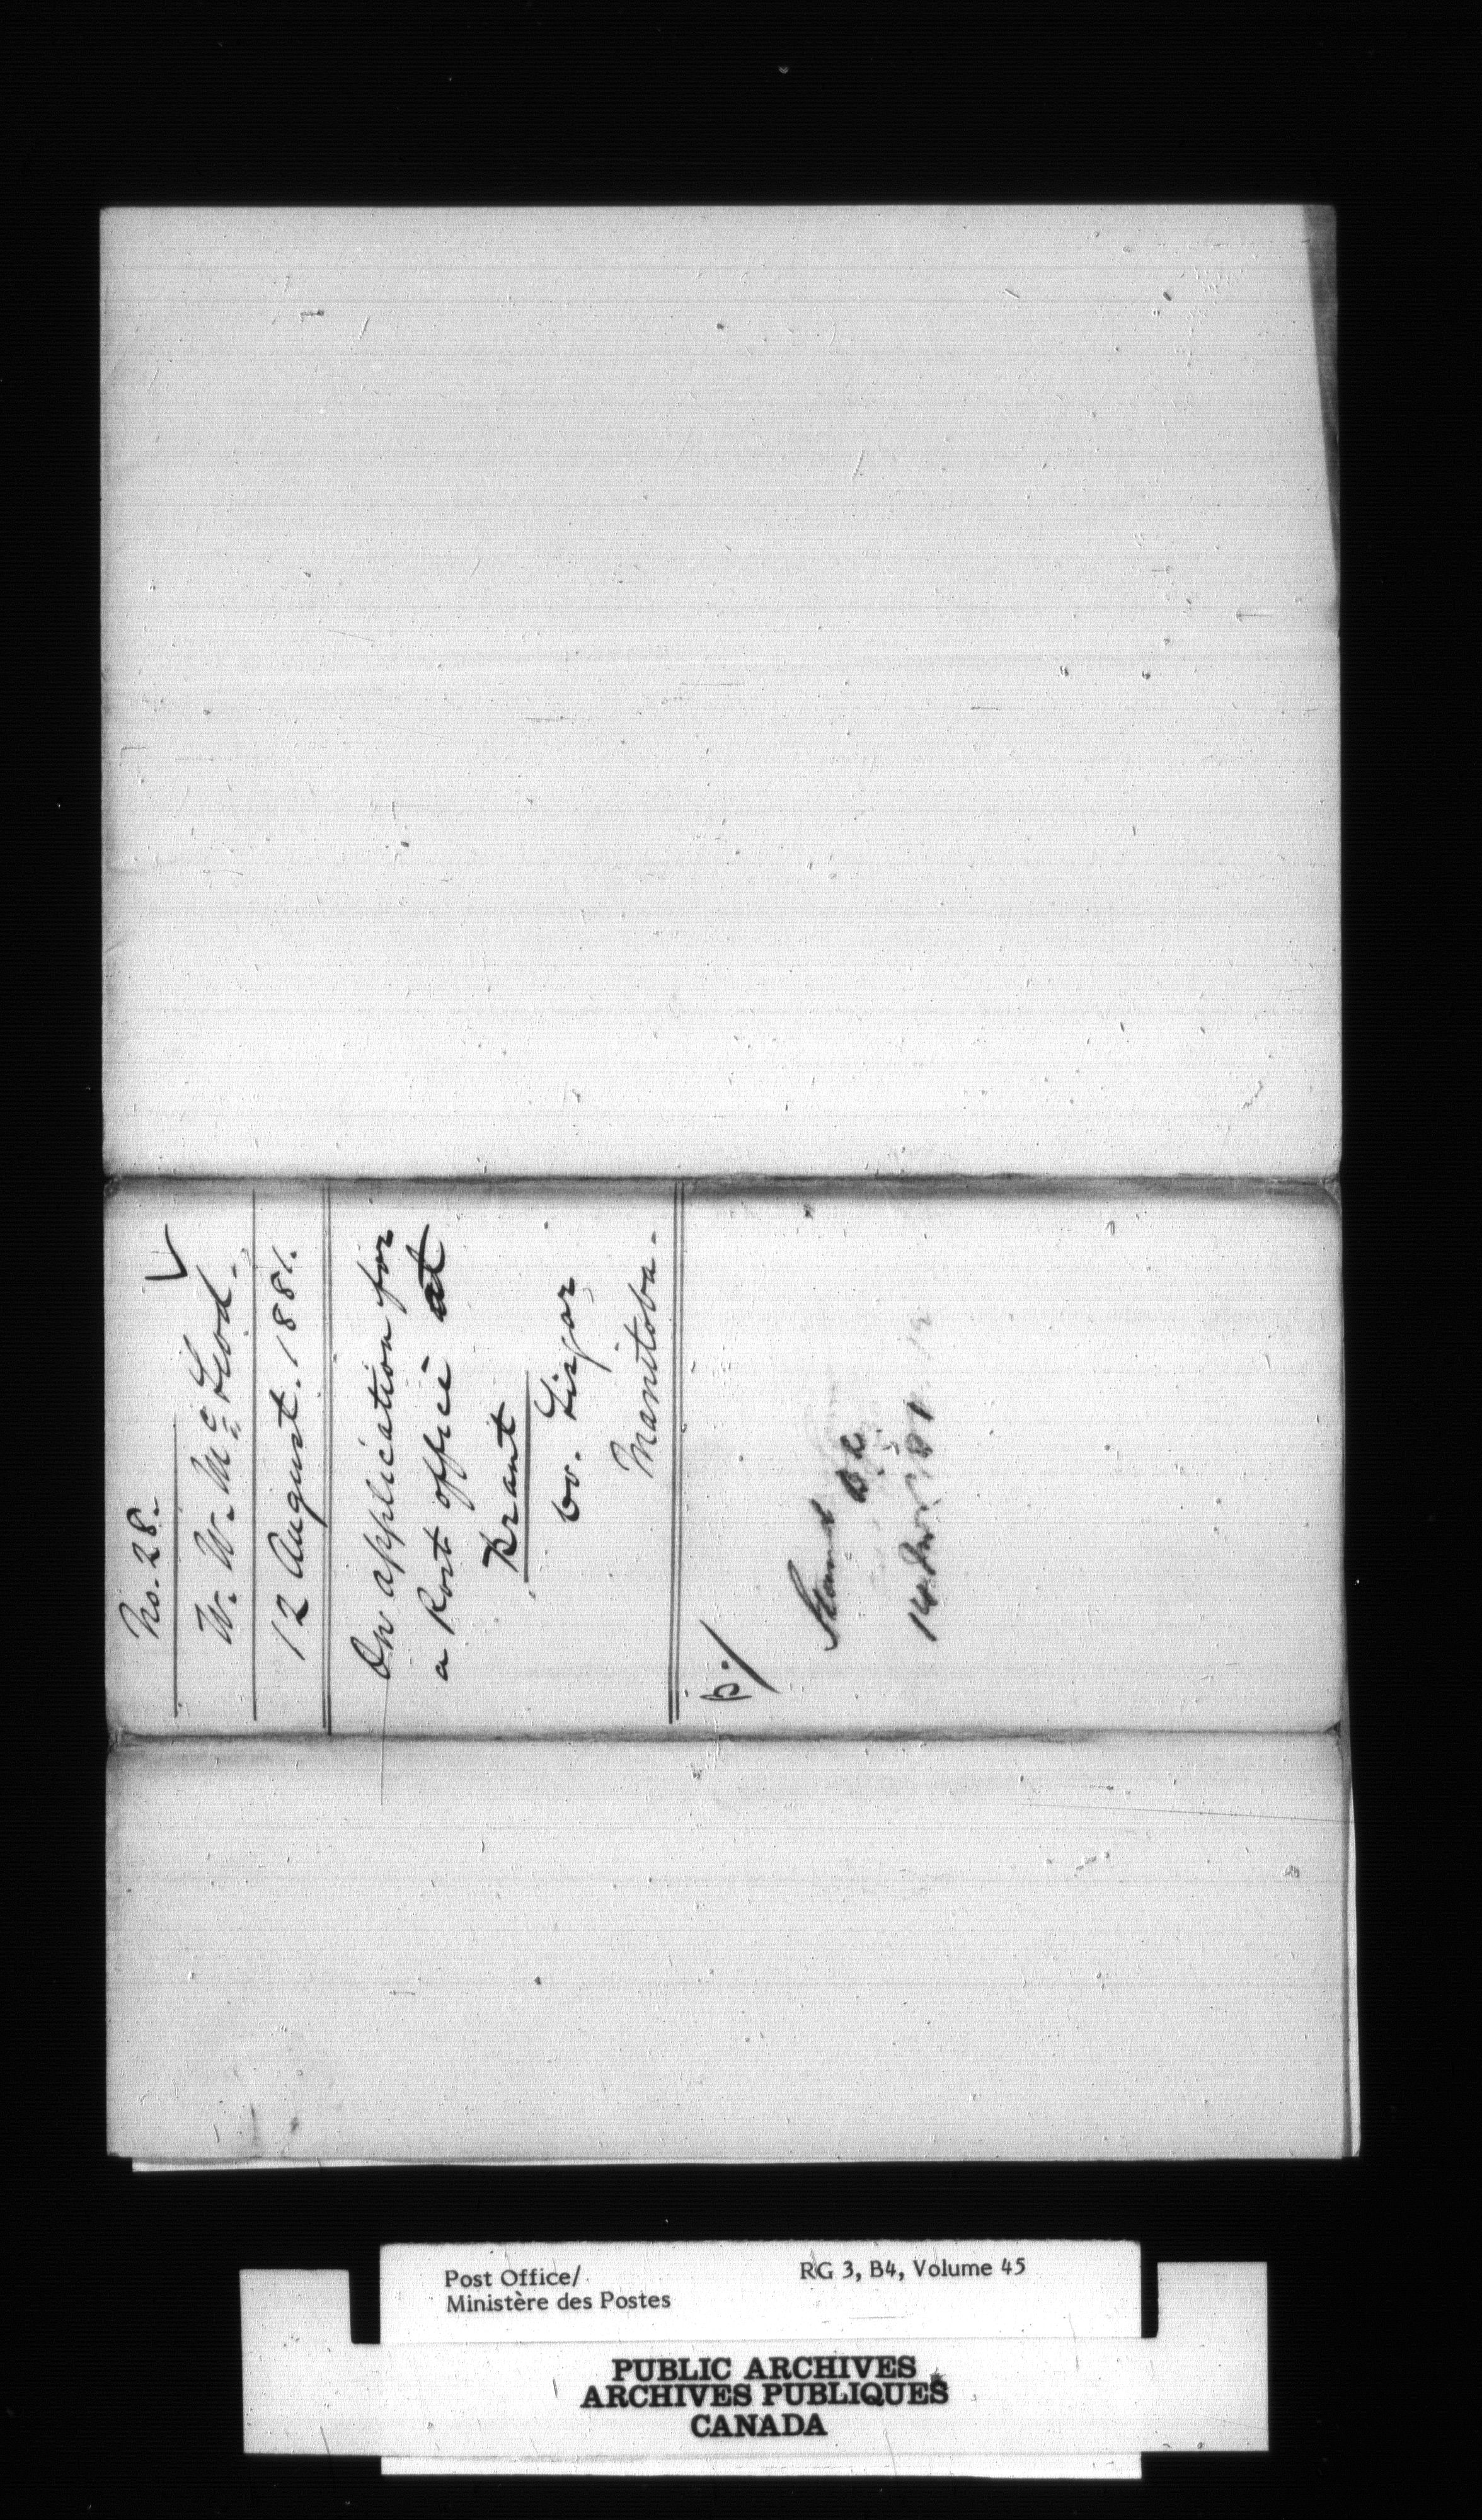 No. 28.
W. W. Mc Leod.
12 August. 1881.
On application for
a Post office at
Brant
Co. Lisgar
Manitoba.
Post Office/
Ministère des Postes
RG 3, B4, Volume 45
PUBLIC ARCHIVES
ARCHIVES PUBLIQUES
CANADA